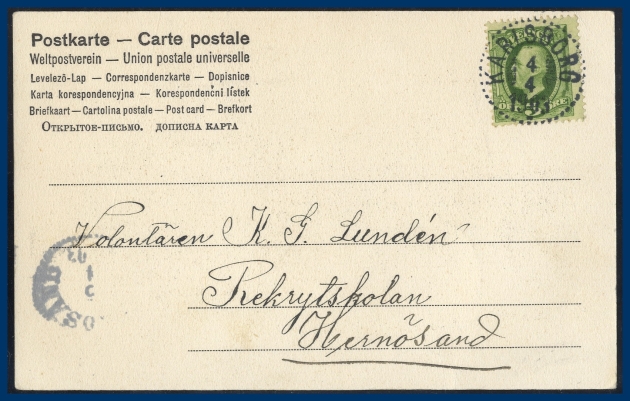 Postkarte — Carte postale
Weltpostverein — Union postale universelle
Levelező-Lap — Correspondenzkarte — Dopisnice
Karta korespondencyjna — Korespondenčni lístek
Briefkaart — Cartolina postale — Post card — Brefkort
Открытое-письмо. дописна карта
KARLSBORG
4
4
Volontären K. G. Lundén
Rekrytskolan
Hernösand